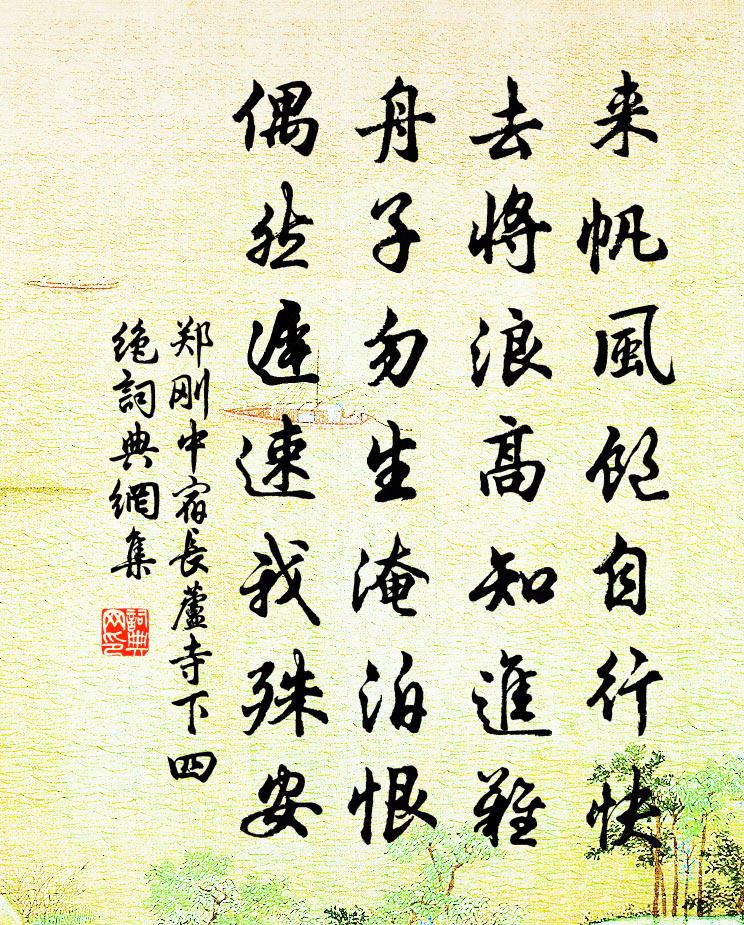 来帆風飽自行快
去將浪高知進難
舟子勿生淹泊恨
偶然遲速我殊安
郑刚中宿長蘆寺下四
絶詞典網集
詞典
网印